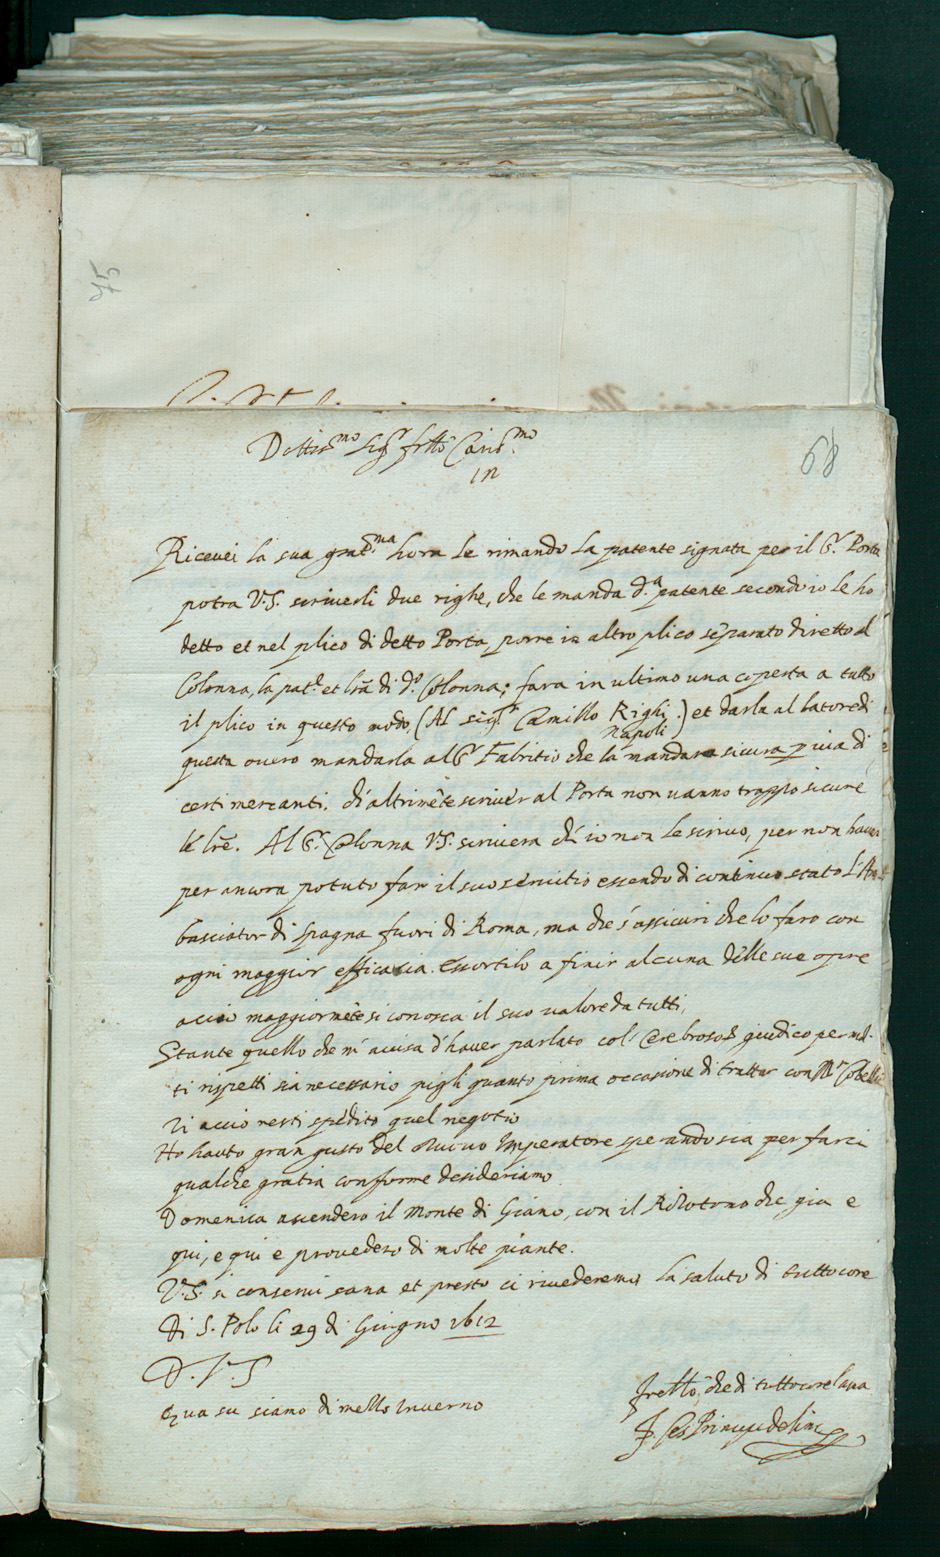 75
68
Dottiss.mo Sig.r fr̃llo Cariss.mo
in
Ricevei la sua grat.ma hora le rimando la patente signata per il S.r Porta
potra V.S. scriverli due righe, che le manda d.a patente secondo io le ho
detto et nel plico di detto Porta, porre in altro plico separato diretto al
Colonna, la pat.e et lr̃a di d.o Colonna; fara in ultimo una coperta a tutto
il plico in questo modo, (Al sig.r Camillo Righi.) et darla al lator di
Napoli
questa overo mandarla al S.r Fabritio che la mandara sicura p via di
certi mercanti. ch'altrimẽte scriver al Porta non vanno troppo sicure
le lr̃e. Al S.r Colonna V.S. scrivera ch'io non le scrivo, per non haver
per ancora potuto far il suo servitio essendo di continuo stato l'Am
basciator di Spagna fuori di Roma, ma che s'assicuri che lo faro con
ogni maggior efficacia. Essortilo a finir alcuna delle sue opre
accio maggiormẽte si conosca il suo valore da tutti,
Stante quello che m'avisa d'haver parlato col Cerebroso giudico per mol-
ti rispetti sia necessario pigli quanto prima occasione di trattar con M.r Cobelluz
zi accio resti spedito quel negotio
Ho hauto gran gusto del nuovo Imperatore sperando sia per farci
qualche gratia conforme desideriamo
Domenica ascendero il Monte di Giano, con il che gia e
qui, e qui e provedero di molte piante.
V.S. si conservi sana et presto ci rivederemo la saluto di tutto core
Di S. Polo li 29 di Giugno 1612
D. V. S
Qua su siamo di mezzo inverno
fr̃ello, che di tutto core l'ama
F. Ces Princip de Lincei